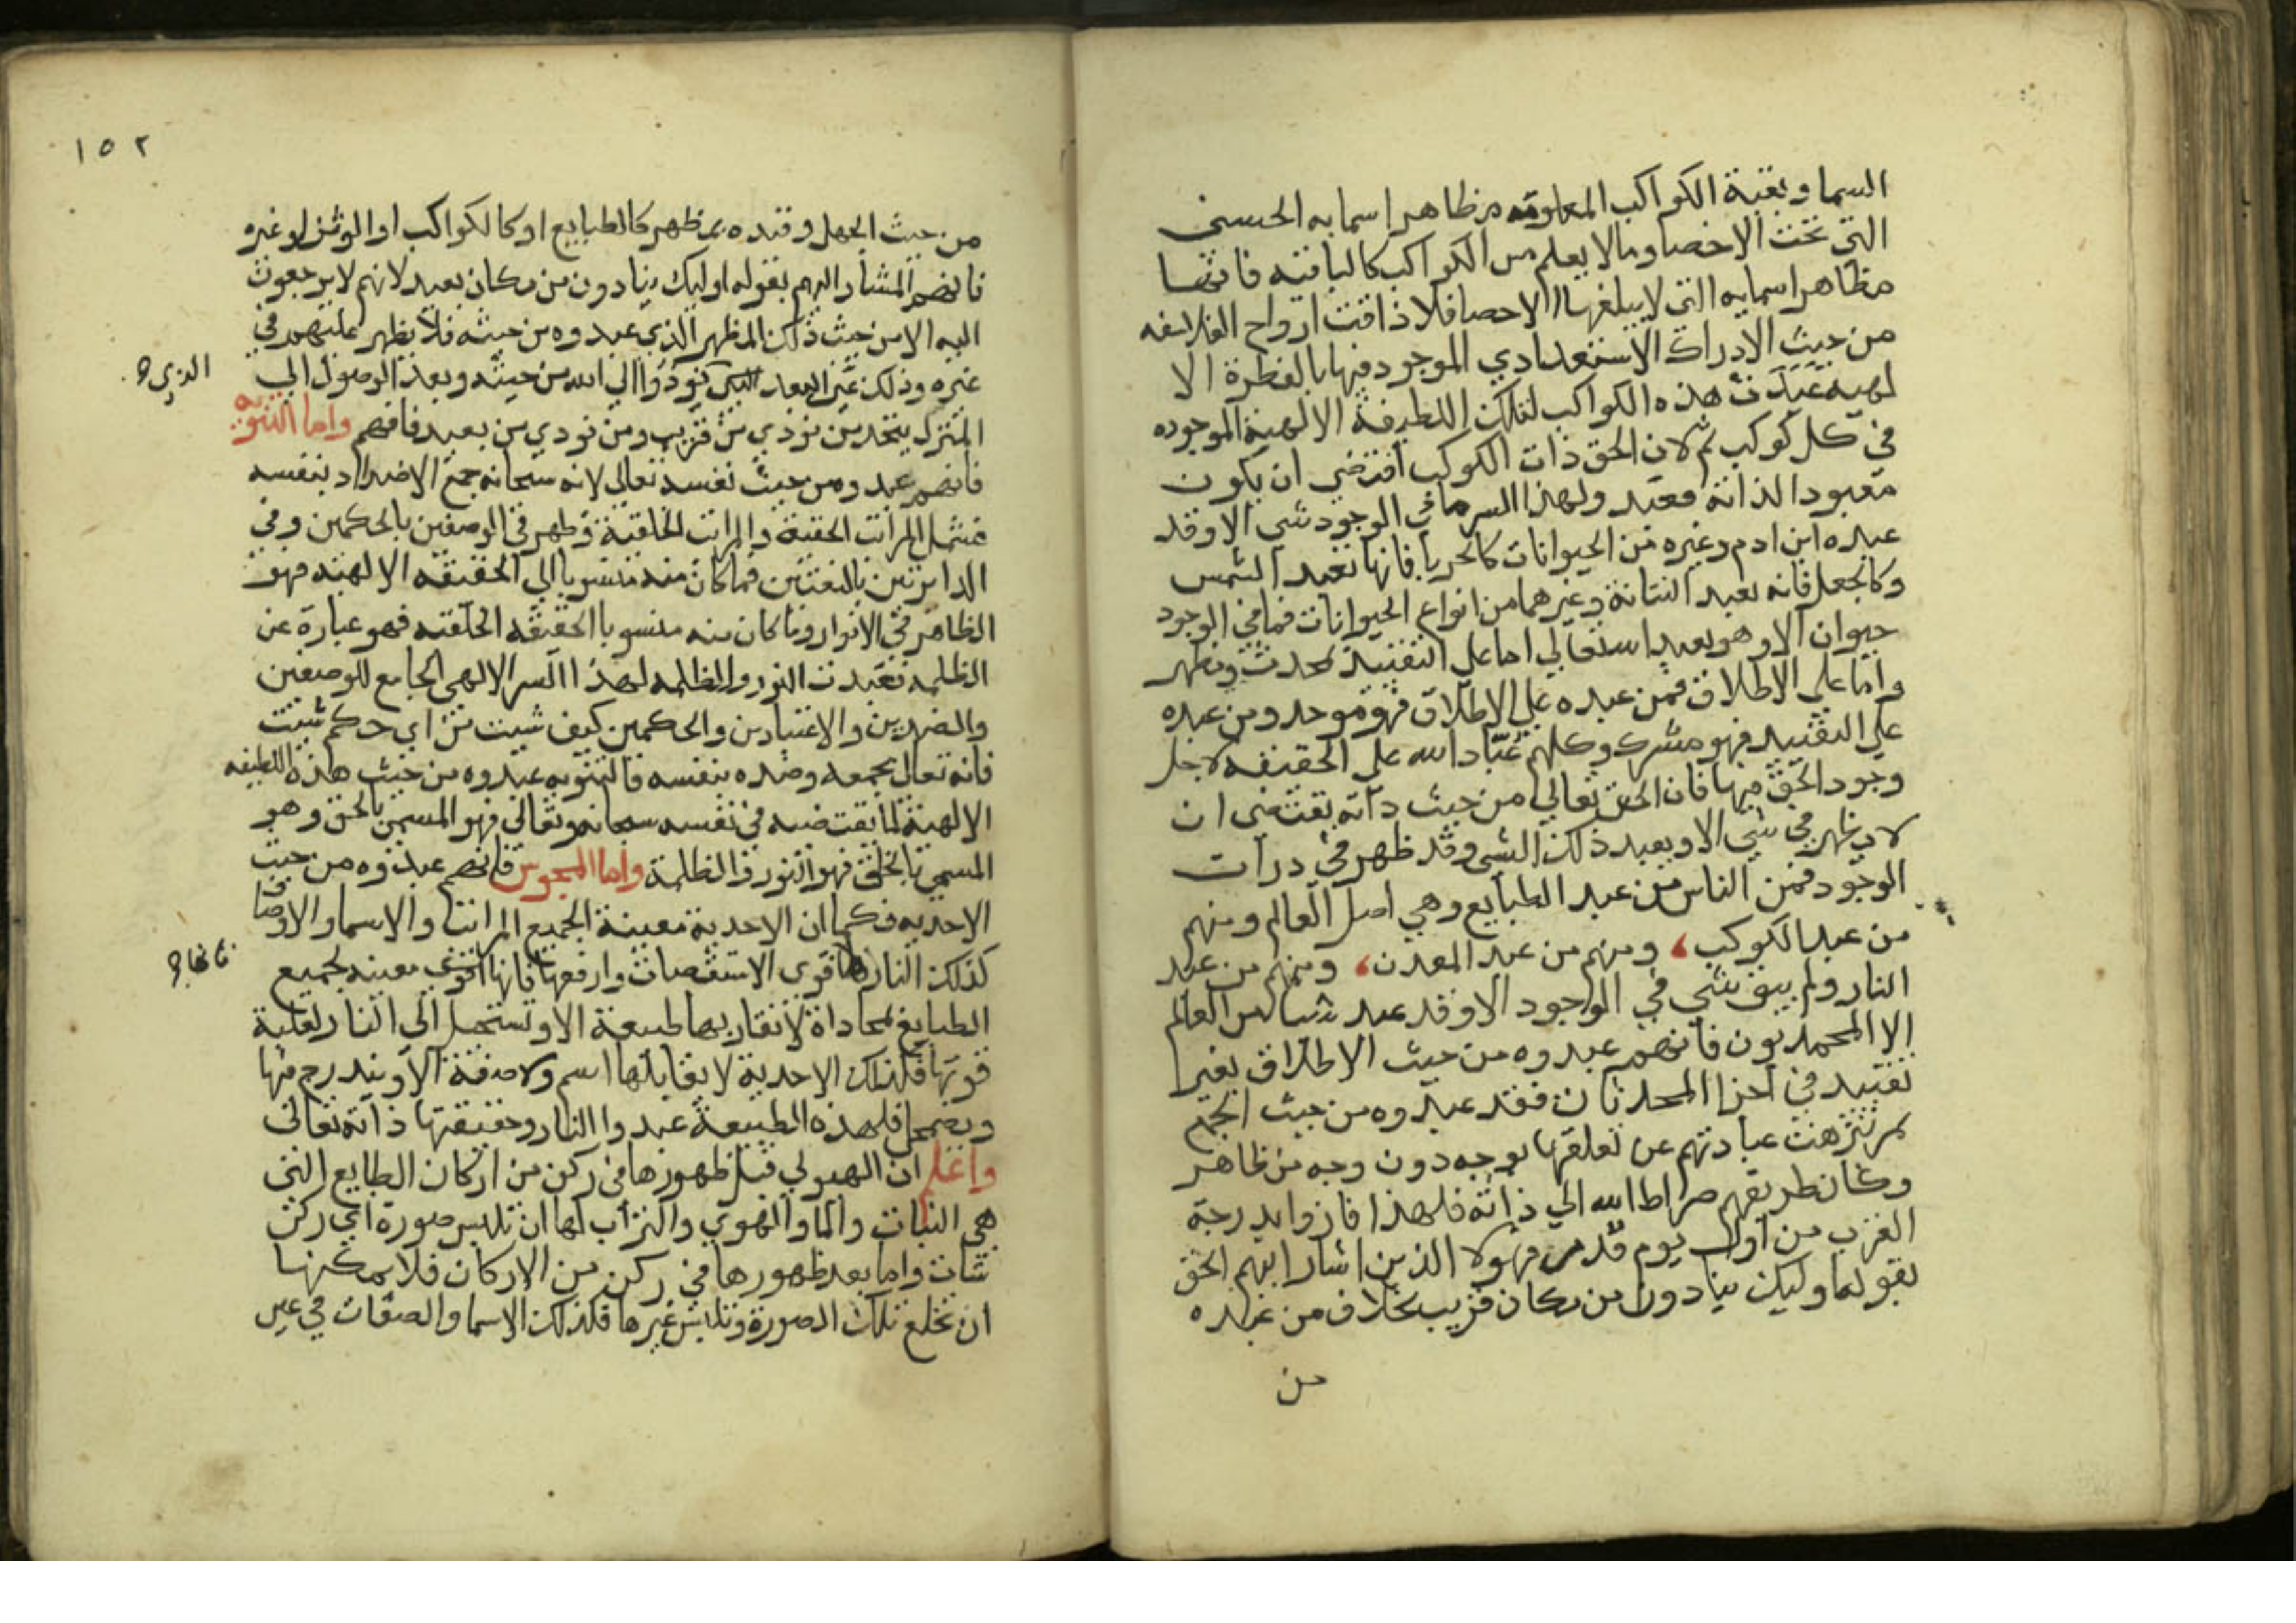 السما وبقية الكواكب المعلومة مظاهر اسمايه الحسنى
التي تحت الاحصا وما لا يعلم من الكواكب كالباقية فانها
مظاهر اسمايه التي لا يبلغها الاحصا فلا ذاقت ارواح الفلاسفه
من حيث الادراك الاستعدادي الموجود فيها بالفطرة الا
لهيه عبدت هذه الكواكب لتلك اللطيفة الالهية الموجوده
في كل كوكب ثم لان الحق ذات الكوكب اقتضى ان يكون
معبودا لذاته فعبد ولهذا السر ما في الوجود شي الا وقد
عبده ابن ادم وغيره من الحيوانات كالحربا فانها تعبد الشمس
وكالجعل فانه يعبد النتانة وغيرهما من انواع الحيوانات فما في الوجود
حيوان الا وهو يعبد الله تعالي اما على التقييد بمحدث ومظهر
واما علي الاطلاق فمن عبده علي الاطلاق فهو موحد ومن عبده
علي التقييد فهو مشرك وكلهم عباد الله علي الحقيقة لاجل
وجود الحق فيها فان الحق تعالي من حيث ذاته يقتضى ان
لا يظهر في شي الا ويعبد ذلك الشي وقد ظهر في ذرات
الوجود فمن الناس من عبد الطبايع وهي اصل العالم ومنهم
من عبد الكوكب، ومنهم من عبد المعدن، ومنهم من عبد
النار ولم يبق شي في الوجود الا وقد عبد شيا من العالم
الا المحمديون فانهم عبدوه من حيث الاطلاق بغير
تقييد في اجزا المحدثات فقد عبدوه من حيث الجميع
ثم تنزهت عبادتهم عن تعلقها بوجه دون وجه من ظاهر
وكان طريقهم صراط الله الي ذاته فلهذا فازوا بدرجة
القرب من اول يوم قدم فهولا الذين اشار اليهم الحق
بقوله اوليك ينادون من مكان قريب بخلاف من عبده
من
١٥٢
من حيث الجهل وقيده بمظهر كالطبايع او كالكواكب او الوثن او غيره
فانهم المشار اليهم بقوله اوليك ينادون من مكان بعيد لانهم لا يرجعون
اليه الا من حيث ذلك المظهر الذي عبدوه من حيثه فلا يظهر عليهم في
غيره وذلك عين البعد الذي نودوا الي الله من حيثه وبعد الوصول الي
الذي
المنزل يتحد من نودي من قريب ومن نودي من بعيد فافهم واما الثنويه
فانهم عبدوه من حيث نفسه تعالى لانه سبحانه جمع الاضداد بنفسه
فشمل المراتب الحقية والمراتب الخلقية وظهر في الوصفين بالحكمين وفي
الدارين بالنعتين فما كان منه منسوبا الي الحقيقه الالهيه فهو
الظاهر في الانوار وما كان منه منسوبا الحقيقه الخلقيه فهو عبارة عن
الظلمه فعبدت النور والظلمه لهذا السر الالهي الجامع للوصفين
والضدين والاعتبارين والحكمين كيف شيت من اي حكم شيت
فانه تعالى يجمعه وضده بنفسه فالثنويه عبدوه من حيث هذه اللطيفه
الالهية لما يقتضيه في نفسه سبحانه وتعالى فهو المسمى بالحق وهو
المسمى بالخلق فهو النور والظلمة واما المجوس فانهم عبدوه من حيث
الاحديه فكما ان الاحدية مفنية لجميع المراتب والاسما والاوصاف
كذلك النار فانها اقوى الاستقصات وارفعها فانها مفنيه لجميع
فانها
الطبايع لمحاذاة لا تقاربها طبيعة الا وتستحيل الى النار لغلبة
قوتها فكذلك الاحدية لا يقابلها اسم ولا صفة الا ويندرج فيها
ويضمحل فلهذه الطبيعة عبدوا النار وحقيقتها ذاته تعالى
واعلم ان الهيولي قبل ظهورها في ركن من اركان الطبايع التي
هي النبات والما والهوي والتراب لها ان تلبس صورة اي ركن
شات واما بعد ظهورها في ركن من الاركان فلا يمكنها
ان تخلع تلك الصورة وتلبس غيرها فكذلك الاسما والصفات في عين